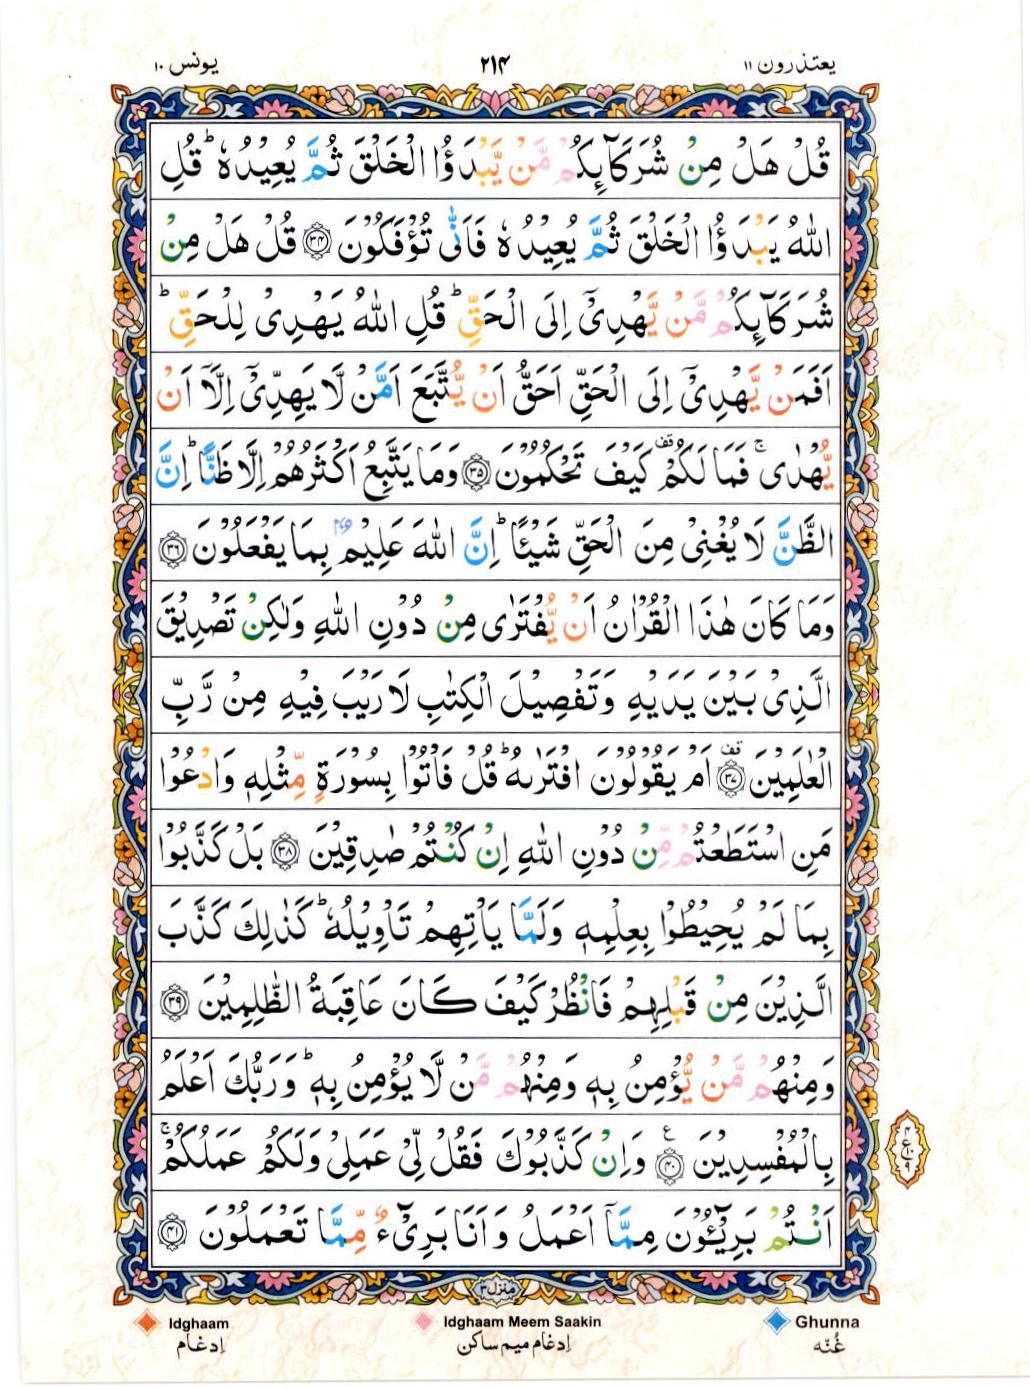 يعتذرون ١١
٢١٤
يونس ١٠
قُلْ هَلْ مِنْ شُرَكَآئِكُمْ مَّنْ يَّبْدَؤُا الْخَلْقَ ثُمَّ يُعِيْدُهٗ ؕ قُلِ
اللّٰهُ يَبْدَؤُا الْخَلْقَ ثُمَّ يُعِيْدُهٗ فَاَنّٰى تُؤْفَكُوْنَ ۝٣٤ قُلْ هَلْ مِنْ
شُرَكَآئِكُمْ مَّنْ يَّهْدِىْۤ اِلَى الْحَقِّ ؕ قُلِ اللّٰهُ يَهْدِىْ لِلْحَقِّ ؕ
اَفَمَنْ يَّهْدِىْۤ اِلَى الْحَقِّ اَحَقُّ اَنْ يُّتَّبَعَ اَمَّنْ لَّا يَهِدِّىْۤ اِلَّاۤ اَنْ
يُّهْدٰى ۚ فَمَا لَكُمْ ࣞ كَيْفَ تَحْكُمُوْنَ ۝٣٥ وَمَا يَتَّبِعُ اَكْثَرُهُمْ اِلَّا ظَنًّا ؕ اِنَّ
الظَّنَّ لَا يُغْنِىْ مِنَ الْحَقِّ شَيْئًا ؕ اِنَّ اللّٰهَ عَلِيْمٌۢ بِمَا يَفْعَلُوْنَ ۝٣٦
وَمَا كَانَ هٰذَا الْقُرْاٰنُ اَنْ يُّفْتَرٰى مِنْ دُوْنِ اللّٰهِ وَلٰكِنْ تَصْدِيْقَ
الَّذِىْ بَيْنَ يَدَيْهِ وَتَفْصِيْلَ الْكِتٰبِ لَا رَيْبَ فِيْهِ مِنْ رَّبِّ
الْعٰلَمِيْنَ ۝٣٧ ࣞ اَمْ يَقُوْلُوْنَ افْتَرٰىهُ ؕ قُلْ فَاْتُوْا بِسُوْرَةٍ مِّثْلِهٖ وَادْعُوْا
مَنِ اسْتَطَعْتُمْ مِّنْ دُوْنِ اللّٰهِ اِنْ كُنْتُمْ صٰدِقِيْنَ ۝٣٨ بَلْ كَذَّبُوْا
بِمَا لَمْ يُحِيْطُوْا بِعِلْمِهٖ وَلَمَّا يَاْتِهِمْ تَاْوِيْلُهٗ ؕ كَذٰلِكَ كَذَّبَ
الَّذِيْنَ مِنْ قَبْلِهِمْ فَانْظُرْ كَيْفَ كَانَ عَاقِبَةُ الظّٰلِمِيْنَ ۝٣٩
وَمِنْهُمْ مَّنْ يُّؤْمِنُ بِهٖ وَمِنْهُمْ مَّنْ لَّا يُؤْمِنُ بِهٖ ؕ وَرَبُّكَ اَعْلَمُ
بِالْمُفْسِدِيْنَ ۝٤٠ ع وَاِنْ كَذَّبُوْكَ فَقُلْ لِّىْ عَمَلِىْ وَلَكُمْ عَمَلُكُمْ ۚ
اَنْتُمْ بَرِيْٓــُٔوْنَ مِمَّاۤ اَعْمَلُ وَاَنَا بَرِىْٓءٌ مِّمَّا تَعْمَلُوْنَ ۝٤١
منزل ٣
Idghaam
Idghaam Meem Saakin
Ghunna
اِدغام
اِدغام میم ساکن
غُنّه